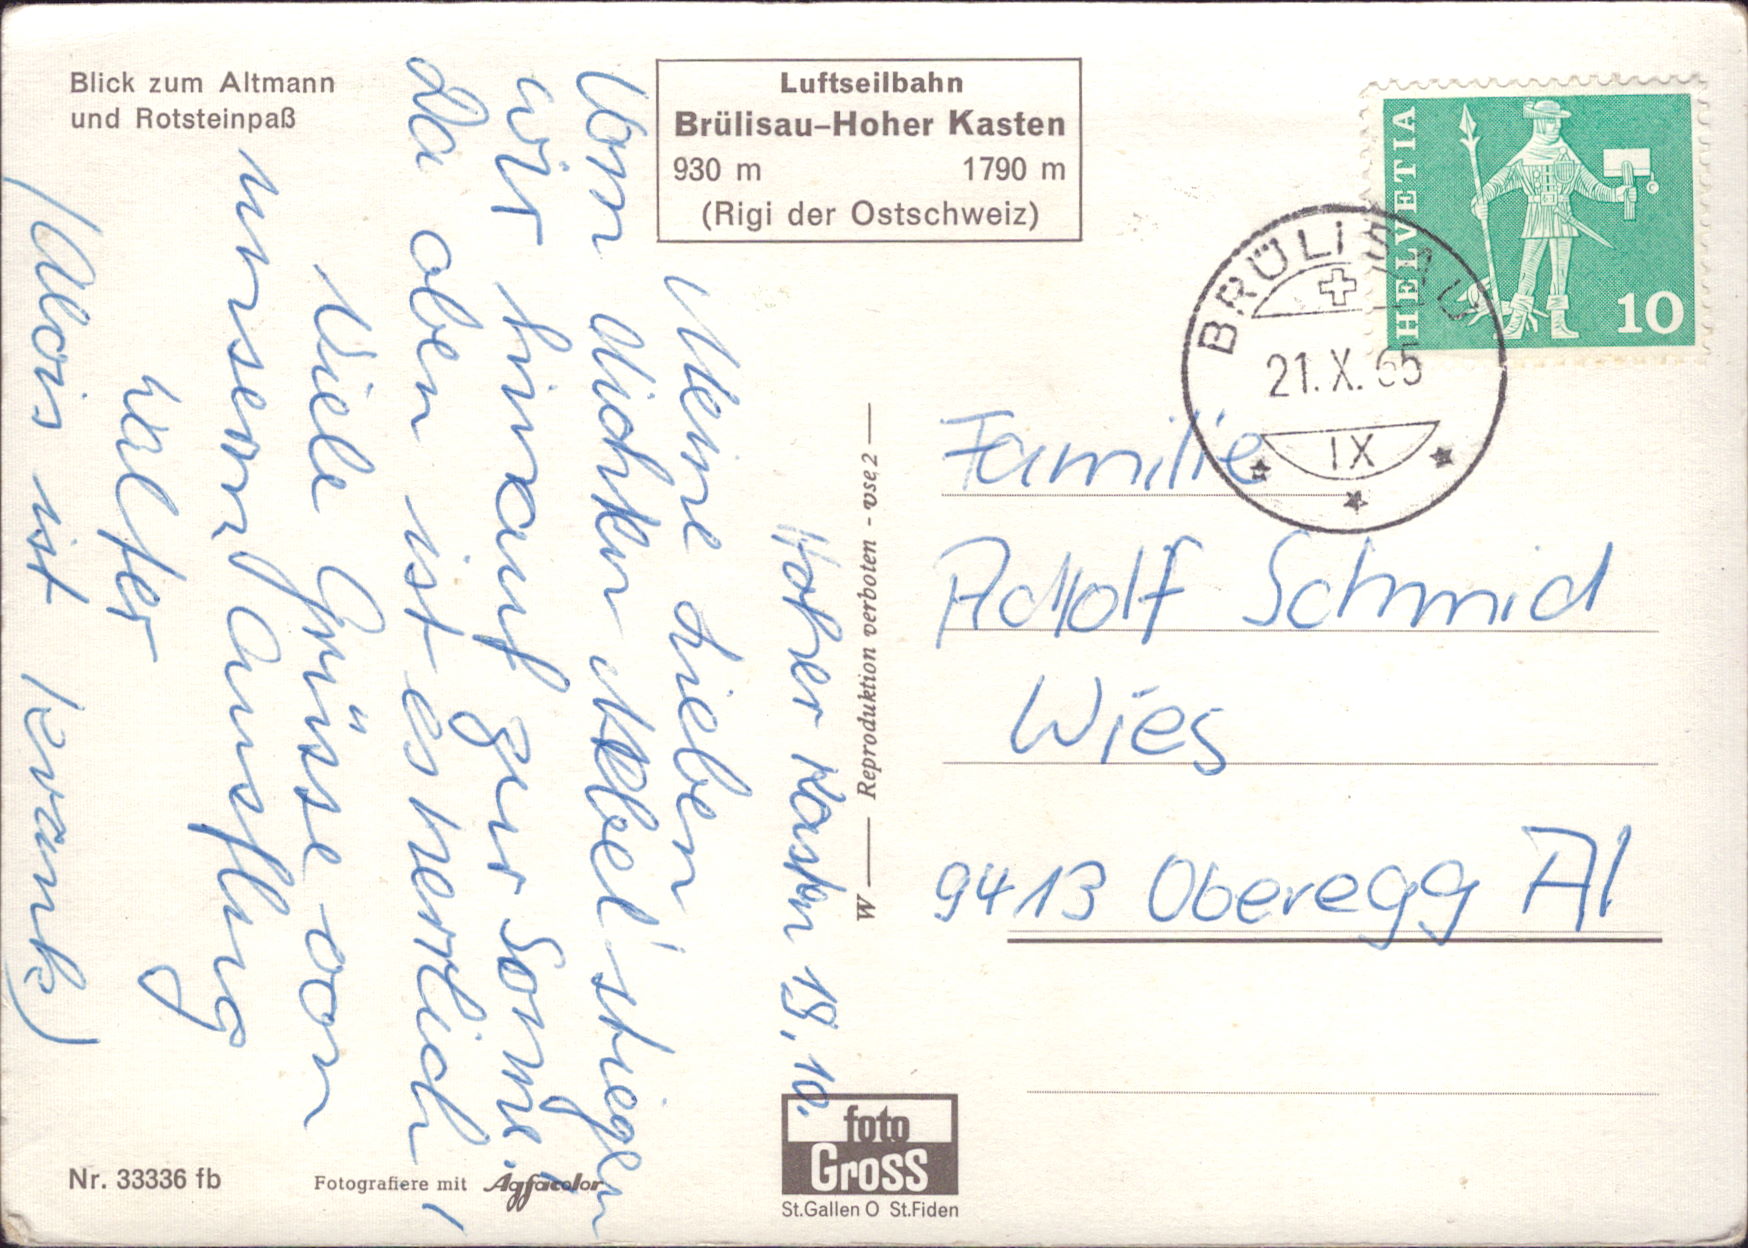 Blick zum Altmann
und Rotsteinpaß
Luftseilbahn
Brülisau–Hoher Kasten
930 m 1790 m
(Rigi der Ostschweiz)
HELVETIA
10
BRÜLISAU
21.X.65
IX
Hoher Kasten 19.10.
Meine Lieben
Vom dicken Nebel stiegen
wir hinauf zur Sonne.
Da oben ist es herrlich!
Viele Grüsse von
unserem Ausflug
Walter
(Alois ist krank)
W — Reproduktion verboten - vse 2 —
Familie
Adolf Schmid
Wies
9413 Oberegg AI
Nr. 33336 fb
Fotografiere mit Agfacolor
foto
Gross
St.Gallen O St.Fiden